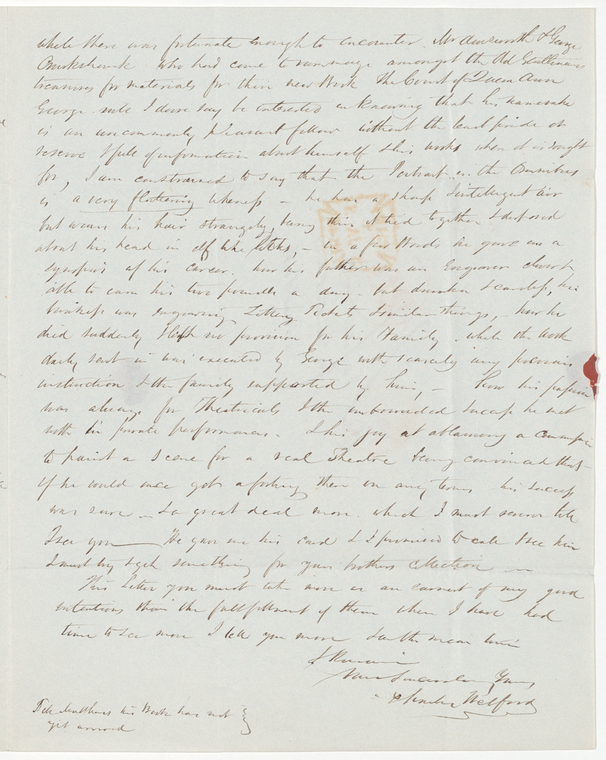 while there was fortunate enough to encounter Mr Ainsworth & George
Cruikshank who had come to rummage amongst the Old Gentlemans
treasures for materials for their new Work The Court of Queen Ann
George will I dare say be interested in knowing that his namesake
is an uncommonly pleasant fellow without the least pride or
reserve & full of information about himself & his works when it is sought
for, I am constrained to say that the Portrait in the Omnibus
is a very flattering likeness – he has a sharp Intelligent air
but wears his hair strangely, being thin, & tied together & disposed
about his head in elf like locks, – in a few Words he gave me a
synopsis of his career. how his father was an Engraver
able to earn his two pounds a day – but drunken & careless, his
business was engraving Lottery Tickets & similar things, how he
died suddenly & left no provision for his Family – while the work
daily sent in was executed by George with scarcely any previous
instruction & the family supported by him, – how his passion
was always for Theatricals & the unbounded success he met
with in private performances – & his joy at obtaining a
to paint a scene for a real Theatre being convinced that
if he could once get a footing there on any terms his success
was sure – & a great deal more which I must reserve till
I see you — He gave me his card & I promised to call & see him
& must try & get something for your brothers Collection —
This letter you must take more as an earnest of my good
intentions than the fulfillment of them when I have had
time to see more I tell you more In the mean time
I Remain
Yours
Charles Welford
Tell his Work has not
yet arrived